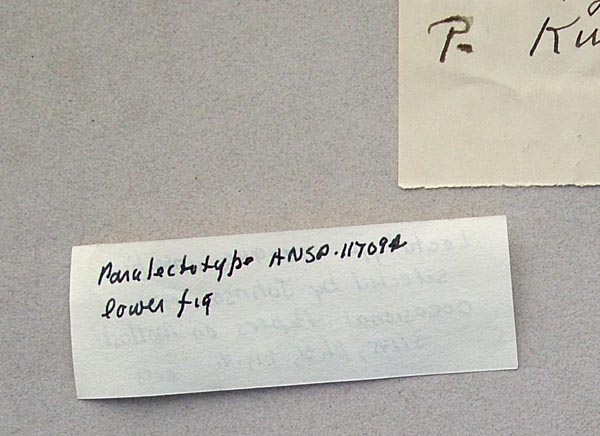 P. Ku
Paralectotype ANSP.117094
lower fig